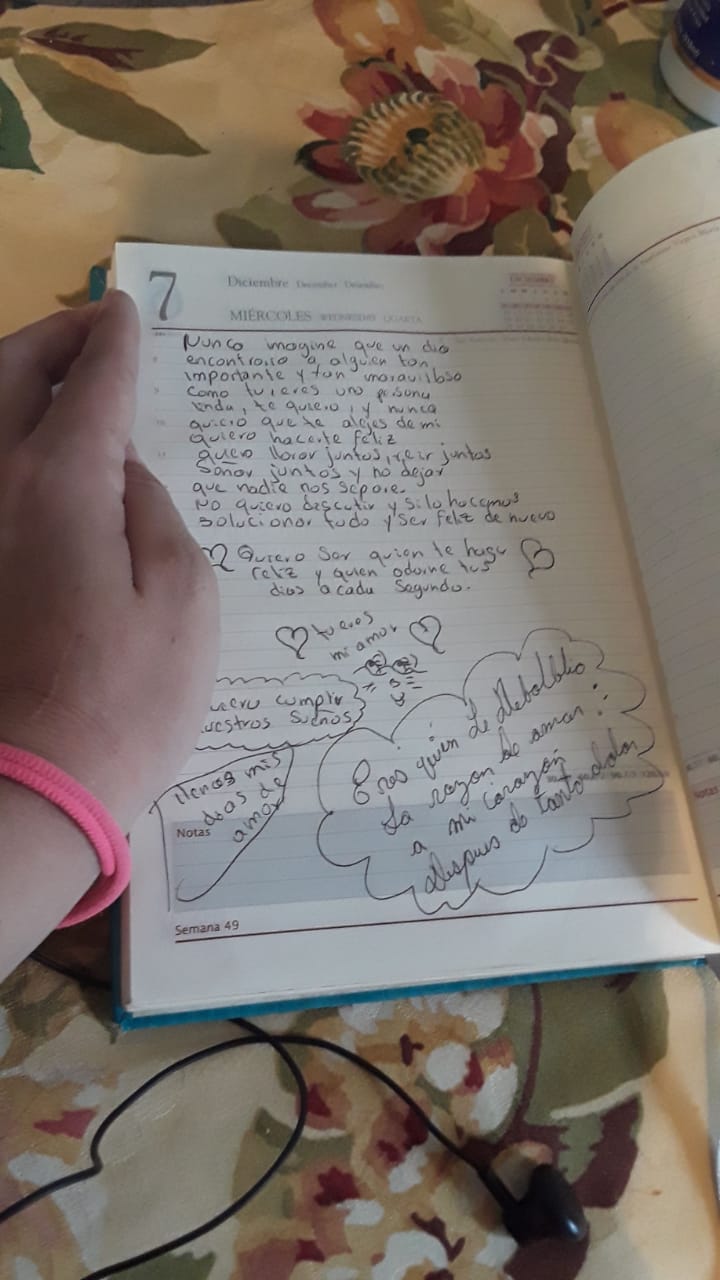 7
Diciembre December Dezembro
MIÉRCOLES WEDNESDAY QUARTA
Nunca imagine que un dia
encontraria a alguien tan
importante y tan maravilloso
como tu eres una persona
linda, te quiero, y nunca
quiero que te alejes de mi
quiero hacerte feliz
quiero llorar juntos, reir juntos
Soñar juntos y no dejar
que nadie nos separe.
No quiero descutir y si lo hacemos
solucionar todo y ser feliz de nuevo
Quiero ser quien te haga
feliz y quien adorne tus
dias a cada segundo.
tu eres
mi amor
uiero cumplir
uestros sueños
llenas mis
dias de
amor
Eres quien le debolbio
La razon de amar
a mi corazón
despues de tanto dolor
Notas
Semana 49
Notas